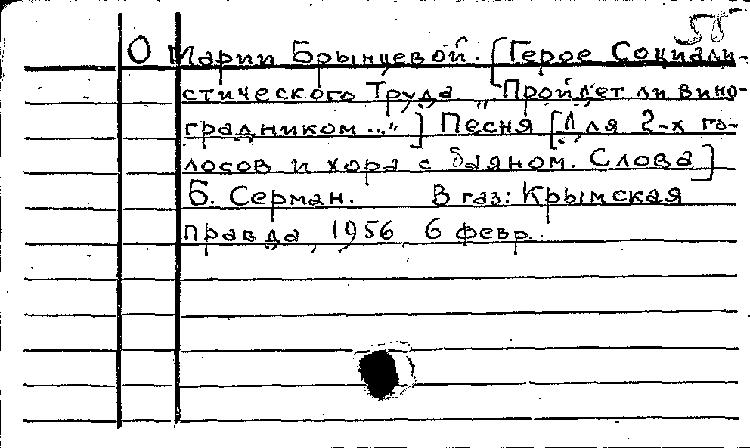 55
О Марии Брынцевой. [Герое Социали-
стического Труда „Пройдет ли вино-
градником..."] Песня [Для 2-х го-
лосов и хора с баяном. Слова]
Б. Серман. В газ: Крымская
правда, 1956, 6 февр.